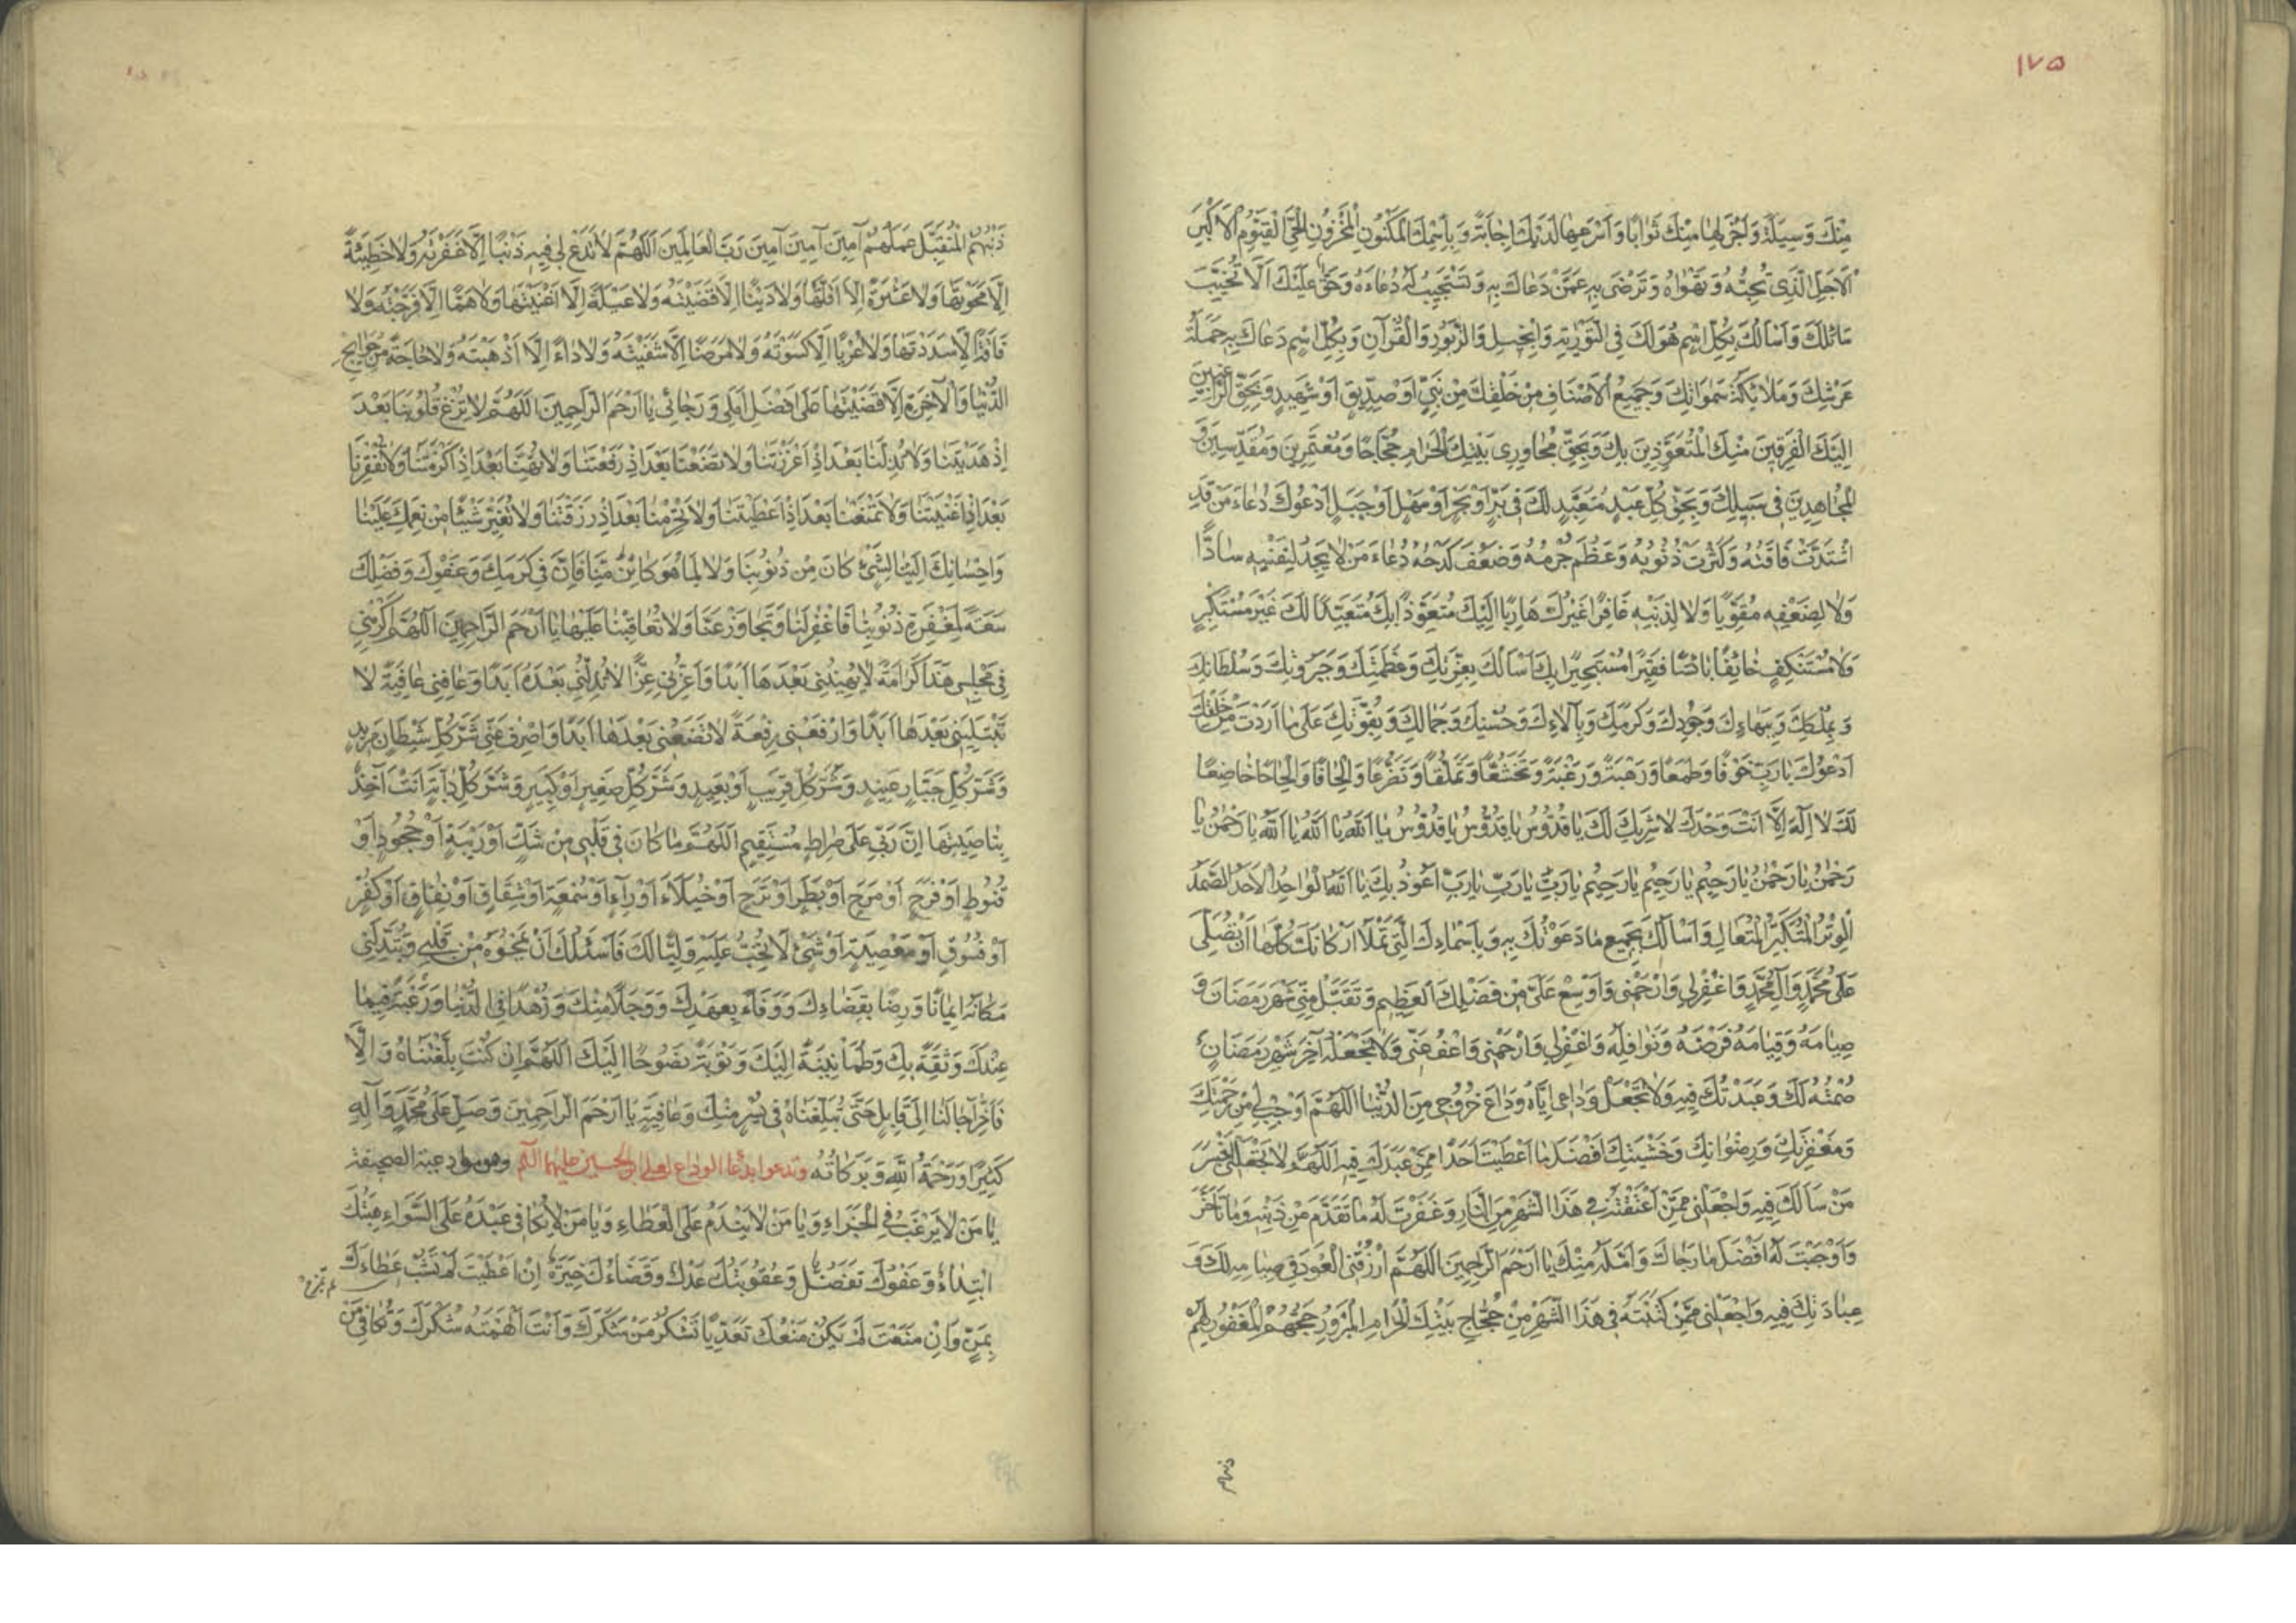 ١٧٥
مِنْكَ وَسِيلَةً وَاَجْزَلِهَا مِنْكَ ثَوَابًا وَاَسْرَعِهَا لَدَيْكَ اِجَابَةً وَبِاسْمِكَ الْمَكْنُونِ الْمَخْزُونِ الْحَيِّ الْقَيُّومِ الْاَكْبَرِ
الْاَجَلِّ الَّذِي تُحِبُّهُ وَتَهْوَاهُ وَتَرْضَى بِهِ عَمَّنْ دَعَاكَ بِهِ وَتَسْتَجِيبُ لَهُ دُعَاءَهُ وَحَقٌّ عَلَيْكَ اَلَّا تُخَيِّبَ
سَائِلَكَ وَاَسْاَلُكَ بِكُلِّ اسْمٍ هُوَ لَكَ فِي التَّوْرٰيةِ وَالْاِنْجِيلِ وَالزَّبُورِ وَالْقُرْآنِ وَبِكُلِّ اسْمٍ دَعَاكَ بِهِ حَمَلَةُ
عَرْشِكَ وَمَلَائِكَةُ سَمٰوَاتِكَ وَجَمِيعُ الْاَصْنَافِ مِنْ خَلْقِكَ مِنْ نَبِيٍّ اَوْ صِدِّيقٍ اَوْ شَهِيدٍ وَبِحَقِّ الرَّاغِبِينَ
اِلَيْكَ الْفَرِقِينَ مِنْكَ الْمُتَعَوِّذِينَ بِكَ وَبِحَقِّ مُجَاوِرِي بَيْتِكَ الْحَرَامِ حُجَّاجًا وَمُعْتَمِرِينَ وَمُقَدِّسِينَ وَ
الْمُجَاهِدِينَ فِي سَبِيلِكَ وَبِحَقِّ كُلِّ عَبْدٍ مُتَعَبِّدٍ لَكَ فِي بَرٍّ اَوْ بَحْرٍ اَوْ سَهْلٍ اَوْ جَبَلٍ اَدْعُوكَ دُعَاءَ مَنْ قَدِ
اشْتَدَّتْ فَاقَتُهُ وَكَثُرَتْ ذُنُوبُهُ وَعَظُمَ جُرْمُهُ وَضَعُفَ كَدْحُهُ دُعَاءَ مَنْ لَا يَجِدُ لِنَفْسِهِ سَادًّا
وَلَا لِضَعْفِهِ مُقَوِّيًا وَلَا لِذَنْبِهِ غَافِرًا غَيْرَكَ هَارِبًا اِلَيْكَ مُتَعَوِّذًا بِكَ مُتَعَبِّدًا لَكَ غَيْرَ مُسْتَكْبِرٍ
وَلَا مُسْتَنْكِفٍ خَائِفًا بَائِسًا فَقِيرًا مُسْتَجِيرًا بِكَ اَسْاَلُكَ بِعِزَّتِكَ وَعَظَمَتِكَ وَجَبَرُوتِكَ وَسُلْطَانِكَ
وَبِمُلْكِكَ وَبِبَهَاءِكَ وَجُودِكَ وَكَرَمِكَ وَبِآلَاءِكَ وَحُسْنِكَ وَجَمَالِكَ وَبِقُوَّتِكَ عَلَى مَا اَرَدْتَ مِنْ خَلْقِكَ
اَدْعُوكَ يَا رَبِّ خَوْفًا وَطَمَعًا وَرَهْبَةً وَرَغْبَةً وَتَخَشُّعًا وَتَمَلُّقًا وَتَضَرُّعًا وَاِلْحَافًا وَاِلْحَاحًا خَاضِعًا
لَكَ لَا اِلٰهَ اِلَّا اَنْتَ وَحْدَكَ لَا شَرِيكَ لَكَ يَا قُدُّوسُ يَا قُدُّوسُ يَا قُدُّوسُ يَا اَللّٰهُ يَا اَللّٰهُ يَا اَللّٰهُ يَا رَحْمٰنُ يَا
رَحْمٰنُ يَا رَحْمٰنُ يَا رَحِيمُ يَا رَحِيمُ يَا رَحِيمُ يَا رَبِّ يَا رَبِّ يَا رَبِّ اَعُوذُ بِكَ يَا اَللّٰهُ الْوَاحِدُ الْاَحَدُ الصَّمَدُ
الْوِتْرُ الْمُتَكَبِّرُ الْمُتَعَالِ وَاَسْاَلُكَ بِجَمِيعِ مَا دَعَوْتُكَ بِهِ وَبِاَسْمَاءِكَ الَّتِي تَمْلَأُ اَرْكَانَكَ كُلَّهَا اَنْ تُصَلِّيَ
عَلَى مُحَمَّدٍ وَآلِ مُحَمَّدٍ وَاغْفِرْ لِي وَارْحَمْنِي وَاَوْسِعْ عَلَيَّ مِنْ فَضْلِكَ الْعَظِيمِ وَتَقَبَّلْ مِنِّي شَهْرَ رَمَضَانَ وَ
صِيَامَهُ وَقِيَامَهُ فَرْضَهُ وَنَوَافِلَهُ وَاغْفِرْ لِي وَارْحَمْنِي وَاعْفُ عَنِّي وَلَا تَجْعَلْهُ آخِرَ شَهْرِ رَمَضَانٍ
صُمْتُهُ لَكَ وَعَبَدْتُكَ فِيهِ وَلَا تَجْعَلْ وَدَاعِي اِيَّاهُ وَدَاعَ خُرُوجِي مِنَ الدُّنْيَا اللّٰهُمَّ اَوْجِبْ لِي مِنْ رَحْمَتِكَ
وَمَغْفِرَتِكَ وَرِضْوَانِكَ وَخَشْيَتِكَ اَفْضَلَ مَا اَعْطَيْتَ اَحَدًا مِمَّنْ عَبَدَكَ فِيهِ اَللّٰهُمَّ لَا تَجْعَلْنِي اَخْسَرَ
مَنْ سَاَلَكَ فِيهِ وَاجْعَلْنِي مِمَّنْ اَعْتَقْتَهُ فِي هَذَا الشَّهْرِ مِنَ النَّارِ وَغَفَرْتَ لَهُ مَا تَقَدَّمَ مِنْ ذَنْبِهِ وَمَا تَاَخَّرَ
وَاَوْجَبْتَ لَهُ اَفْضَلَ مَا رَجَاكَ وَاَمَّلَهُ مِنْكَ يَا اَرْحَمَ الرَّاحِمِينَ اَللّٰهُمَّ ارْزُقْنِي الْعَوْدَ فِي صِيَامِهِ لَكَ وَ
عِبَادَتِكَ فِيهِ وَاجْعَلْنِي مِمَّنْ كَتَبْتَهُ فِي هَذَا الشَّهْرِ مِنْ حُجَّاجِ بَيْتِكَ الْحَرَامِ الْمَبْرُورِ حَجُّهُمُ الْمَغْفُورِ لَهُمْ
ذنبهم
ذَنْبُهُمُ الْمُتَقَبَّلِ عَمَلُهُمْ آمِينَ آمِينَ آمِينَ رَبَّ الْعَالَمِينَ اَللّٰهُمَّ لَا تَدَعْ لِي فِيهِ ذَنْبًا اِلَّا غَفَرْتَهُ وَلَا خَطِيئَةً
اِلَّا مَحَوْتَهَا وَلَا عَثْرَةً اِلَّا اَقَلْتَهَا وَلَا دَيْنًا اِلَّا قَضَيْتَهُ وَلَا عَيْلَةً اِلَّا اَغْنَيْتَهَا وَلَا هَمًّا اِلَّا فَرَّجْتَهُ وَلَا
فَاقَةً اِلَّا سَدَدْتَهَا وَلَا عُرْيًا اِلَّا كَسَوْتَهُ وَلَا مَرَضًا اِلَّا شَفَيْتَهُ وَلَا دَاءً اِلَّا اَذْهَبْتَهُ وَلَا حَاجَةً مِنْ حَوَائِجِ
الدُّنْيَا وَالْآخِرَةِ اِلَّا قَضَيْتَهَا عَلَى اَفْضَلِ اَمَلِي وَرَجَائِي يَا اَرْحَمَ الرَّاحِمِينَ اَللّٰهُمَّ لَا تُزِغْ قُلُوبَنَا بَعْدَ
اِذْ هَدَيْتَنَا وَلَا تُذِلَّنَا بَعْدَ اِذْ اَعْزَزْتَنَا وَلَا تَضَعْنَا بَعْدَ اِذْ رَفَعْتَنَا وَلَا تُهِنَّا بَعْدَ اِذْ اَكْرَمْتَنَا وَلَا تُفْقِرْنَا
بَعْدَ اِذْ اَغْنَيْتَنَا وَلَا تَمْنَعْنَا بَعْدَ اِذْ اَعْطَيْتَنَا وَلَا تَحْرِمْنَا بَعْدَ اِذْ رَزَقْتَنَا وَلَا تُغَيِّرْ شَيْئًا مِنْ نِعَمِكَ عَلَيْنَا
وَاِحْسَانِكَ اِلَيْنَا لِشَيْءٍ كَانَ مِنْ ذُنُوبِنَا وَلَا لِمَا هُوَ كَائِنٌ مِنَّا فَاِنَّ فِي كَرَمِكَ وَعَفْوِكَ وَفَضْلِكَ
سَعَةً لِمَغْفِرَةِ ذُنُوبِنَا فَاغْفِرْ لَنَا وَتَجَاوَزْ عَنَّا وَلَا تُعَاقِبْنَا عَلَيْهَا يَا اَرْحَمَ الرَّاحِمِينَ اَللّٰهُمَّ اَكْرِمْنِي
فِي مَجْلِسِي هَذَا كَرَامَةً لَا تُهِينُنِي بَعْدَهَا اَبَدًا وَاَعِزَّنِي عِزًّا لَا تُذِلُّنِي بَعْدَهُ اَبَدًا وَعَافِنِي عَافِيَةً لَا
تَبْتَلِينِي بَعْدَهَا اَبَدًا وَارْفَعْنِي رِفْعَةً لَا تَضَعُنِي بَعْدَهَا اَبَدًا وَاصْرِفْ عَنِّي شَرَّ كُلِّ شَيْطَانٍ مَرِيدٍ
وَشَرَّ كُلِّ جَبَّارٍ عَنِيدٍ وَشَرَّ كُلِّ قَرِيبٍ اَوْ بَعِيدٍ وَشَرَّ كُلِّ صَغِيرٍ اَوْ كَبِيرٍ وَشَرَّ كُلِّ دَابَّةٍ اَنْتَ آخِذٌ
بِنَاصِيَتِهَا اِنَّ رَبِّي عَلَى صِرَاطٍ مُسْتَقِيمٍ اَللّٰهُمَّ مَا كَانَ فِي قَلْبِي مِنْ شَكٍّ اَوْ رِيبَةٍ اَوْ جُحُودٍ اَوْ
قُنُوطٍ اَوْ فَرَحٍ اَوْ مَرَحٍ اَوْ بَطَرٍ اَوْ تَرَحٍ اَوْ خُيَلَاءَ اَوْ رِيَآءٍ اَوْ سُمْعَةٍ اَوْ شِقَاقٍ اَوْ نِفَاقٍ اَوْ كُفْرٍ
اَوْ فُسُوقٍ اَوْ مَعْصِيَةٍ اَوْ شَيْءٍ لَا تُحِبُّ عَلَيْهِ وَلِيًّا لَكَ فَاَسْئَلُكَ اَنْ تَمْحُوَهُ مِنْ قَلْبِي وَتُبَدِّلَنِي
مَكَانَهُ اِيمَانًا وَرِضًا بِقَضَاءِكَ وَوَفَاءً بِعَهْدِكَ وَوَجَلًا مِنْكَ وَزُهْدًا فِي الدُّنْيَا وَرَغْبَةً فِيمَا
عِنْدَكَ وَثِقَةً بِكَ وَطُمَأْنِينَةً اِلَيْكَ وَتَوْبَةً نَصُوحًا اِلَيْكَ اَللّٰهُمَّ اِنْ كُنْتَ بَلَّغْتَنَاهُ وَاِلَّا
فَاَخِّرْ آجَالَنَا اِلَى قَابِلٍ حَتَّى تُبَلِّغَنَاهُ فِي يُسْرٍ مِنْكَ وَعَافِيَةٍ يَا اَرْحَمَ الرَّاحِمِينَ وَصَلِّ عَلَى مُحَمَّدٍ وَآلِهِ
كَثِيرًا وَرَحْمَةُ اللّٰهِ وَبَرَكَاتُهُ وتدعوا بدعا الوداع لعلي بن الحسين عليهما السلم وهو من ادعية الصحيفة
يَا مَنْ لَا يَرْغَبُ فِي الْجَزَاءِ وَيَا مَنْ لَا يَنْدَمُ عَلَى الْعَطَاءِ وَيَا مَنْ لَا يُكَافِي عَبْدَهُ عَلَى السَّوَاءِ مِنَّتُكَ
ابْتِدَاءٌ وَعَفْوُكَ تَفَضُّلٌ وَعُقُوبَتُكَ عَدْلٌ وَقَضَاءُكَ خِيَرَةٌ اِنْ اَعْطَيْتَ لَمْ تَشُبْ عَطَاءَكَ
بِمَنٍّ وَاِنْ مَنَعْتَ لَمْ يَكُنْ مَنْعُكَ تَعَدِّيًا تَشْكُرُ مَنْ شَكَرَكَ وَاَنْتَ اَلْهَمْتَهُ شُكْرَكَ وَتُكَافِي مَنْ